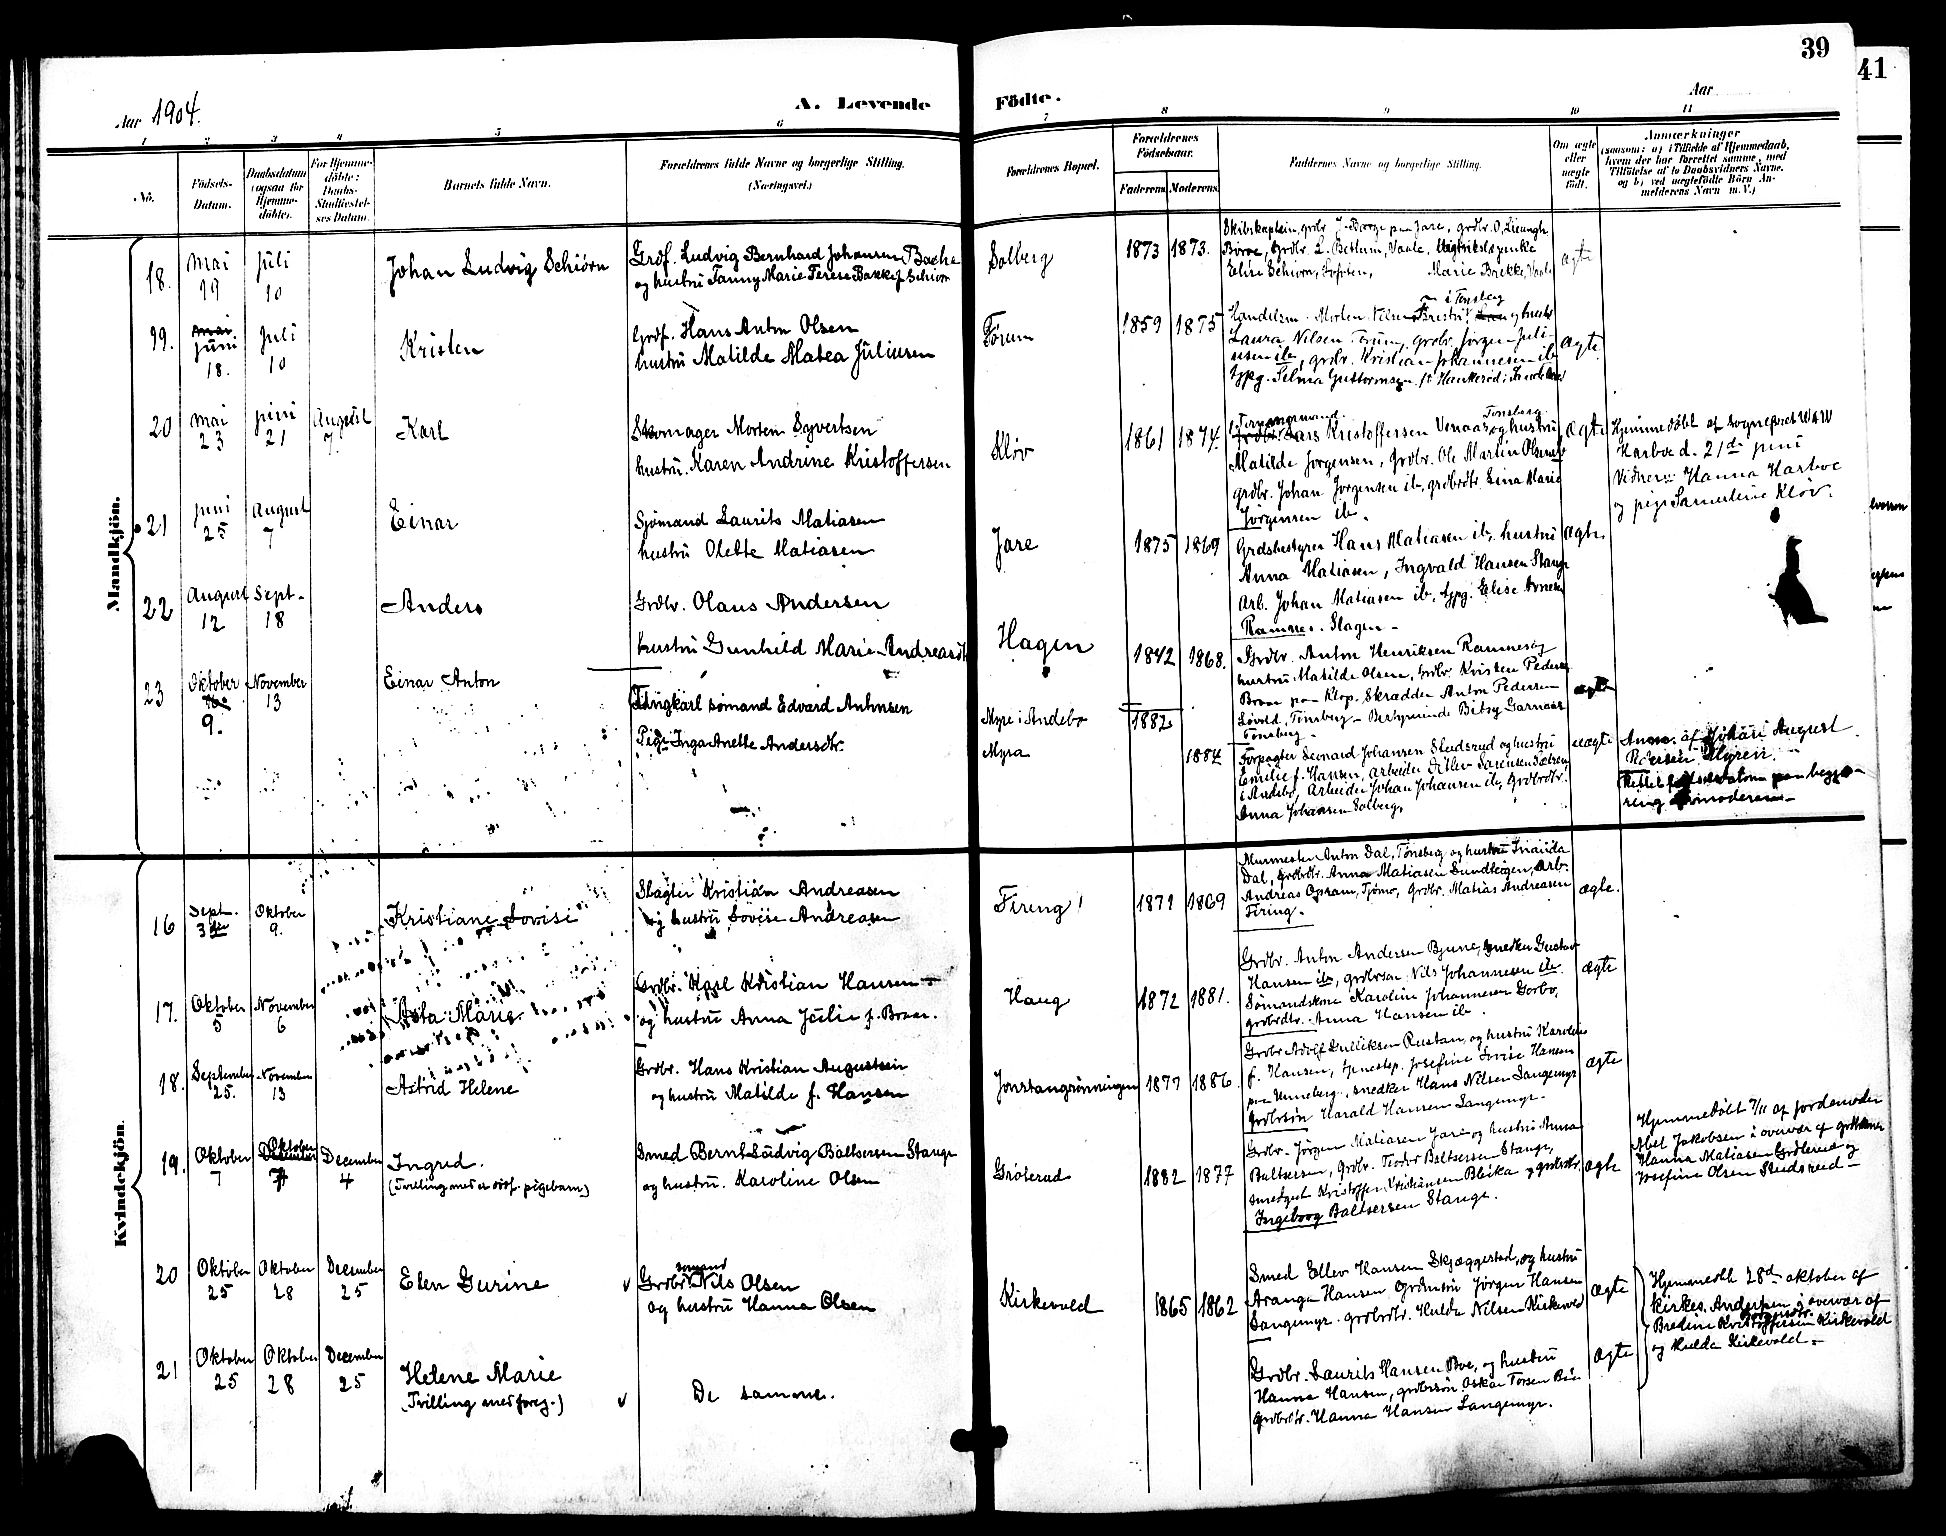 39
41
Aar 1904.
A. Levende
Födte.
Aar
1 2 3 4 5 6 7 8 9 10 11
No.
Födsels-
Datum.
Daabsdatum
(ogsaa for
Hjemme-
döbte).
For Hjemme-
döbte:
Daabs-
Stadfæstel-
ses Datum.
Barnets fulde Navn.
Forældrenes fulde Navne og borgerlige Stilling.
(Næringsvei.)
Forældrenes Bopæl.
Forældrenes
Födselsaar.
Faderens Moderens
Faddernes Navne og borgerlige Stilling.
Om ægte
eller
uægte
födt.
Anmærkninger
(saasom: a) i Tilfælde af Hjemmedaab,
hvem der har forrettet samme, med
Tilföielse af to Daabsvidners Navne,
og b) ved uægtefödte Börn An-
melderens Navn m. V.)
Mandkjön.
18.
Mai
19
Juli
10
Johan Ludvig Schiörn
Grdf. Ludvig Bernhard Johansen Bache
og hustru Fanny Marie Terese Bakke f. Schiörn
Solberg
1873 1873.
Skibskaptein, grdbr J. Borge paa Jare, grdbr. O. Lieungh
Börre, Grdbr. L. Betlum, Vaale,
Elise Schiörn, Marie Brekke, Vaale
ægte
19.
Mai
Juni
18.
Juli
10
Kristen
Grdf. Hans Anton Olsen
hustru Matilde Matea Juliusen
Forum
1859 1875
i Tonsberg
Handelsm. Morten og hustr.
Laura Nilsen Forum, grdbr. Jörgen Juli-
usen ib, grdbr. Kristian Johannesen ib
tjpg. Selma Guttormsen
ægte
20
Mai
23
Juni
21
August
7.
Karl
Skomager Morten Syvertsen
hustru. Karen Andrine Kristoffersen
Klöv
1861 1874.
Tonsberg
Lars Kristoffersen og hustru
Matilde Jorgensen, Grdbr. Ole Martin Olsen ib
grdbr. Johan Jorgensen ib, grdbrdtr. Lina Marie
Jörgensen ib.
ægte
Hjemmedöbt af sognepræst
Harboe d. 21de juni
Vidner: Hanna Harboe
og pige Samueline Klöv.
21
Juni
25
August
7
Einar
Sjömand Laurits Matiasen
hustru Olette Matiasen
Jare
1875 1869
Grdsbestyrer Hans Matiasen ib, hustru
Anna Matiasen, Ingvald Hansen Stange
Arb. Johan Matiasen ib, tjpg. Elise
Ramnes. Slagen -
ægte
22
August
12
Sept.
18
Anders
Grdbr. Olaus Andersen
hustru Gunhild Marie Andreasdtr
Hagen
1842 1868.
Grdbr. Anton Henriksen Ramnes og
hustru Matilde Olsen, Grdbr. Kristen Pedersen
Braar paa Klop. Skrædder Anton Pedersen
Lövold, Tönsberg - Betsy Garnaas
Tönsberg -
ægte
23
Oktober
9.
November
13
Einar Anton
Ungkarl sömand Edvard Antonsen
Pige Inga Anette Andersdtr.
Myre i Andebo
Myra
1882
1884
Forpagter Leonard Johansen Sledsrud og hustru
Emilie f. Hansen, arbeider Ditlev Sörensen
i Andebo, Arbeider Johan Johansen ib, Grdbrdtr.
Anna Johansen Solberg.
uægte
Anm. af Johan August
Pedersen Myren.
Kvindekjön.
16
Sept.
3die
Oktober
9.
Kristiane Lovise
Slagter Kristian Andreasen
og hustru Lovise Andreasen
Firing
1871 1869
Murmester Anton Dal, Tönsberg og hustru
Dal, grdbrdtr. Anna Matiasen Sundleigen, arb.
Andreas Opram, Tjömo, Grdbr. Matias Andreasen
Firing.
ægte.
17.
Oktober
5
November
6
Asta Marie.
Grdbr. Karl Kristian Hansen
og hustru Anna Julie f. Braar.
Haug
1872 1881.
Grdbr. Anton Andersen Bjune, Snedker Gustav
Hansen ib, grdbrsön Nils Johannesen ib.
Sömandskone Karoline Johannesen Gorbo,
grdbrdtr. Anna Hansen ib.
ægte
18.
September
25.
November
13
Astrid Helene
Grdbr. Hans Kristian Augustsen
og hustru Matilde f. Hansen
Jonstangrönningen
1877 1886.
Grdbr Adolf Gulliksen Rustan, og hustru Karoline
f. Hansen, tjenestep. Josefine Lovise Hansen
paa Unneberg, snedker Hans Nilsen Langemyr
Grdbrsön Harald Hansen Langemyr.
ægte
19.
Oktober
7
Oktober
7
December
4
Ingrid.
(Tvilling med et pigebarn)
Smed Bernt Ludvig Baltsersen Stange
og hustru. Karoline Olsen
Gröterud
1882 1877
Grdbr. Jörgen Matiasen Jare og hustru Anna
Baltsersen, grdbr. Teodor Baltsersen Stange,
Kristoffer Kristiansen Bleika og grdbrdtr.
Ingeborg Baltsersen Stange.
ægte
Hjemmedöbt 7/11 af jordemoder
Abel Jakobsen i overvær af
Hanna Matiasen Gröterud og
Josefine Olsen Sledsrud -
20
Oktober
25
Oktober
28
December
25
Elen Gurine
sömand
Grdbr. Nils Olsen
og hustru Hanna Olsen
Kirkevold
1865 1862
Smed Ellev Hansen Skjæggestad, og hustru
Aranga Hansen Grdmtru Jörgen Hansen
Langemyr. grdbrdtr. Hulda Nilsen Kirkevold
ægte
Hjemmedöbt 28d oktober af
kirkes. Andersen i overvær af
Bredine Kristoffersen Kirkevold
og Hulda Kirkevold -
21
Oktober
25
Oktober
28
December
25
Helene Marie
(Tvilling med foreg.)
De samme.
Grdbr. Laurits Hansen Boe, og hustru
Hanna Hansen, grdbrsön Oskar Torsen Böe
Grdbrdtr. Hanna Hansen Langemyr.
ægte